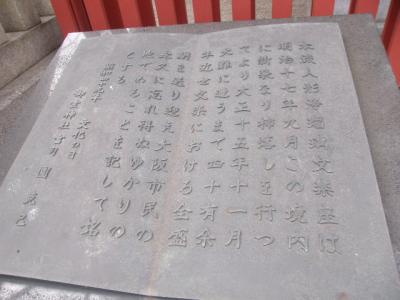 木浪人形浄瑠璃文楽座は
明治十七年九月この境内
に新築なり柿落しを行つ
てより大正十五年十一月
火難に遭うまで四十有余
年近世文楽における全盛
期を送り迎え大阪市民の
永久に忘れ得ぬゆかりの
地であることを記して銘
とする
文化の日
御霊神社宮司 園 克己